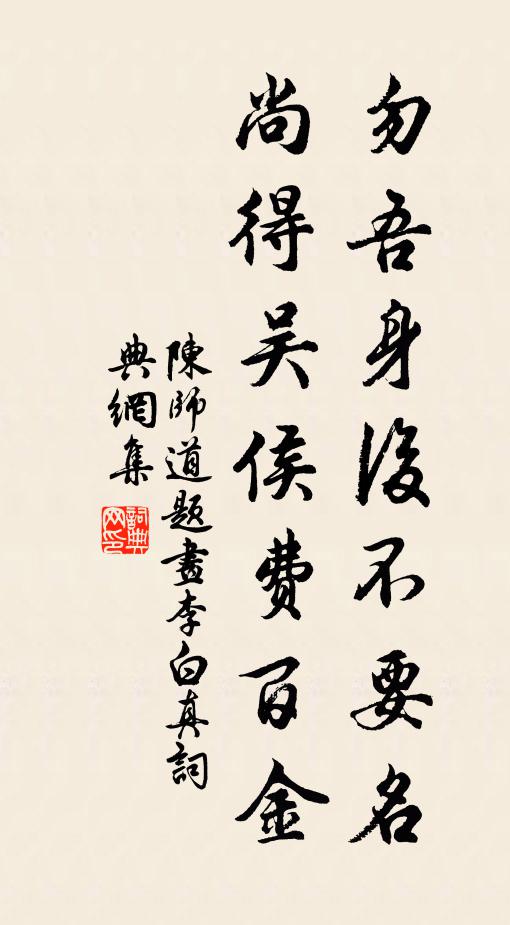 勿吾身後不要名
尚得吴侯费百金
陳師道題畫李白真詞
典網集
詞典
网印